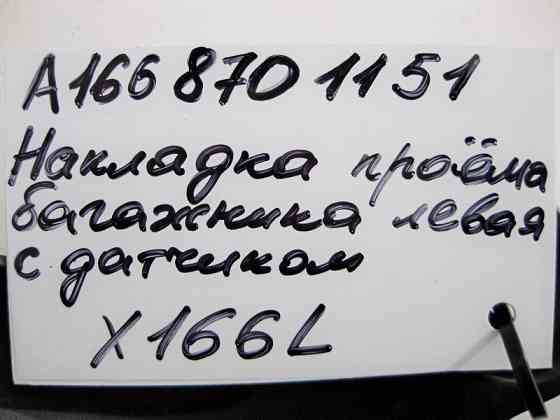 A166 870 11 51
Накладка проёма
багажника левая
с датчиком
X166L